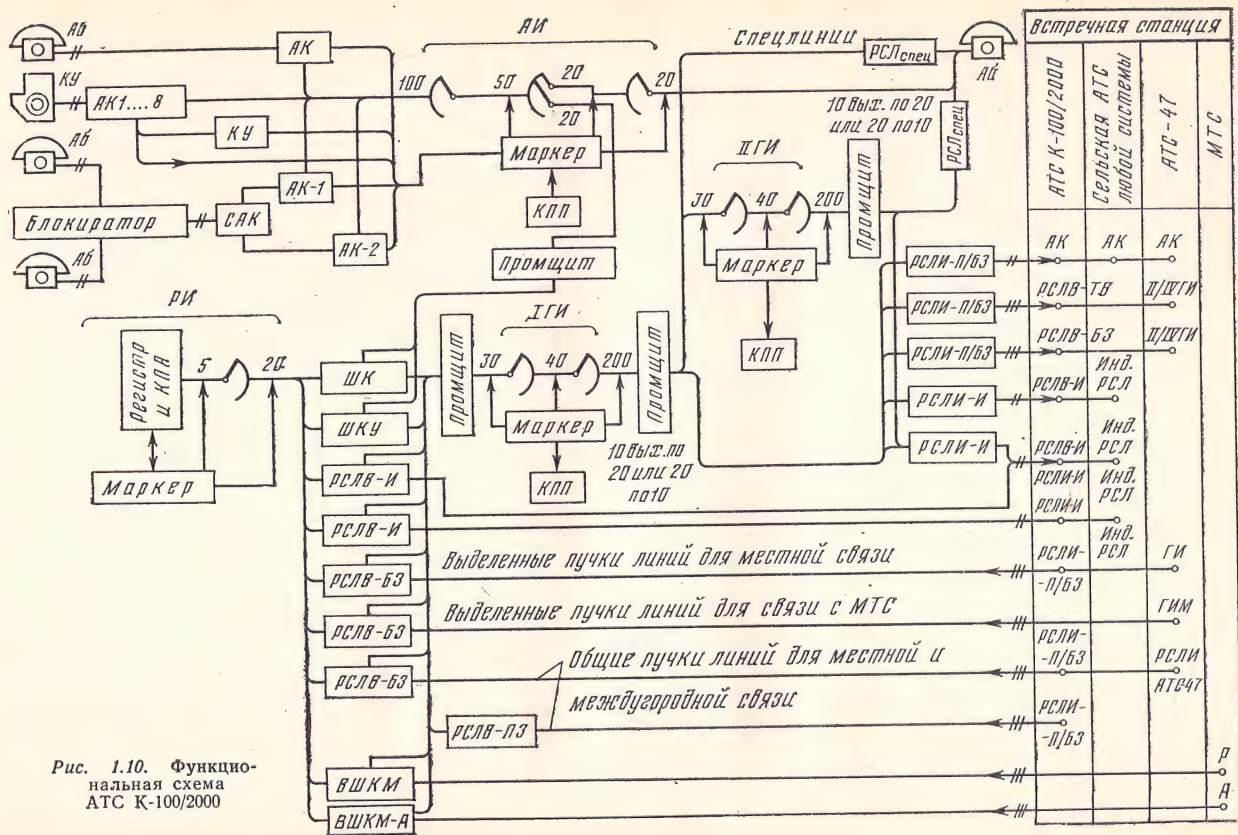 Аб
АК
АИ
Спецлинии
РСЛспец
Аб
КУ
АК1....8
100
50
20
20
20
10 вых. по 20
или 20 по 10
РСЛспец
КУ
Маркер
КПП
Аб
АК-1
Блокиратор
САК
АК-2
Аб
Промщит
IIГИ
30
40
200
Промщит
Маркер
КПП
РИ
Регистр
и КПА
5
20
Маркер
IГИ
Промщит
30
40
200
Промщит
Маркер
КПП
10 вых. по
20 или 20
по 10
ШК
ШКУ
РСЛВ-И
РСЛВ-И
РСЛВ-БЗ
РСЛВ-БЗ
РСЛВ-БЗ
РСЛВ-ПЗ
ВШКМ
ВШКМ-А
РСЛИ-П/БЗ
РСЛИ-П/БЗ
РСЛИ-П/БЗ
РСЛИ-И
РСЛИ-И
Выделенные пучки линий для местной связи
Выделенные пучки линий для связи с МТС
Общие пучки линий для местной и
междугородной связи
Встречная станция
АТС К-100/2000
Сельская АТС
любой системы
АТС-47
МТС
АК
АК
АК
РСЛВ-ТВ
II/IVГИ
РСЛВ-БЗ
II/IVГИ
РСЛВ-И
Инд.
РСЛ
РСЛВ-И
Инд.
РСЛ
РСЛИ-И
Инд.
РСЛ
РСЛИ-И
Инд.
РСЛ
РСЛИ-
-П/БЗ
ГИ
ГИМ
РСЛИ-
-П/БЗ
РСЛИ
АТС47
РСЛИ-
-П/БЗ
Р
А
Рис. 1.10. Функцио-
нальная схема
АТС К-100/2000